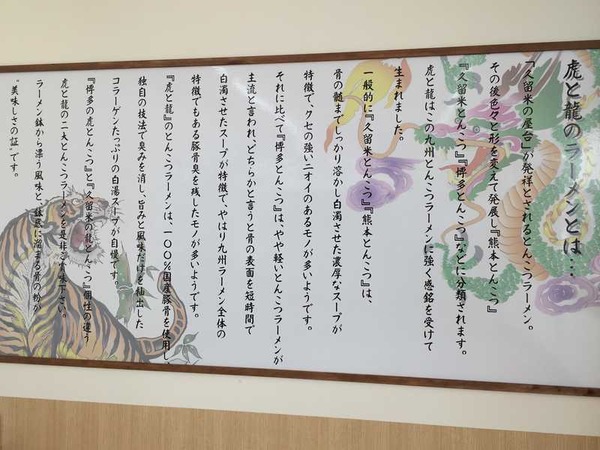 虎と龍のラーメンとは…
「久留米の屋台」が発祥とされるとんこつラーメン。
その後色々と形を変えて発展し『熊本とんこつ』
『久留米とんこつ』『博多とんこつ』などに分類されます。
虎と龍はこの九州とんこつラーメンに強く感銘を受けて
生まれました。
一般的に『久留米とんこつ』『熊本とんこつ』は、
骨の髄までしっかり溶かし白濁させた濃厚なスープが
特徴で、クセの強いニオイのあるモノが多いようです。
それに比べて『博多とんこつ』は、やや軽いとんこつラーメンが
主流と言われ、どちらかと言うと骨の表面を短時間で
白濁させたスープが特徴で、やはり九州ラーメン全体の
特徴でもある豚骨臭を残したモノが多いようです。
『虎と龍』のとんこつラーメンは、一〇〇%国産豚骨を使用し、
独自の技法で臭みを消し、旨みと風味だけを抽出した
コラーゲンたっぷりの白湯スープが自慢です。
『博多の虎とんこつ』と『久留米の龍とんこつ』個性の違う
虎と龍の二大とんこつラーメンを是非ご賞味下さい。
ラーメン鉢から漂う風味と、鉢底に溜まる骨の粉が
“美味しさの証”です。